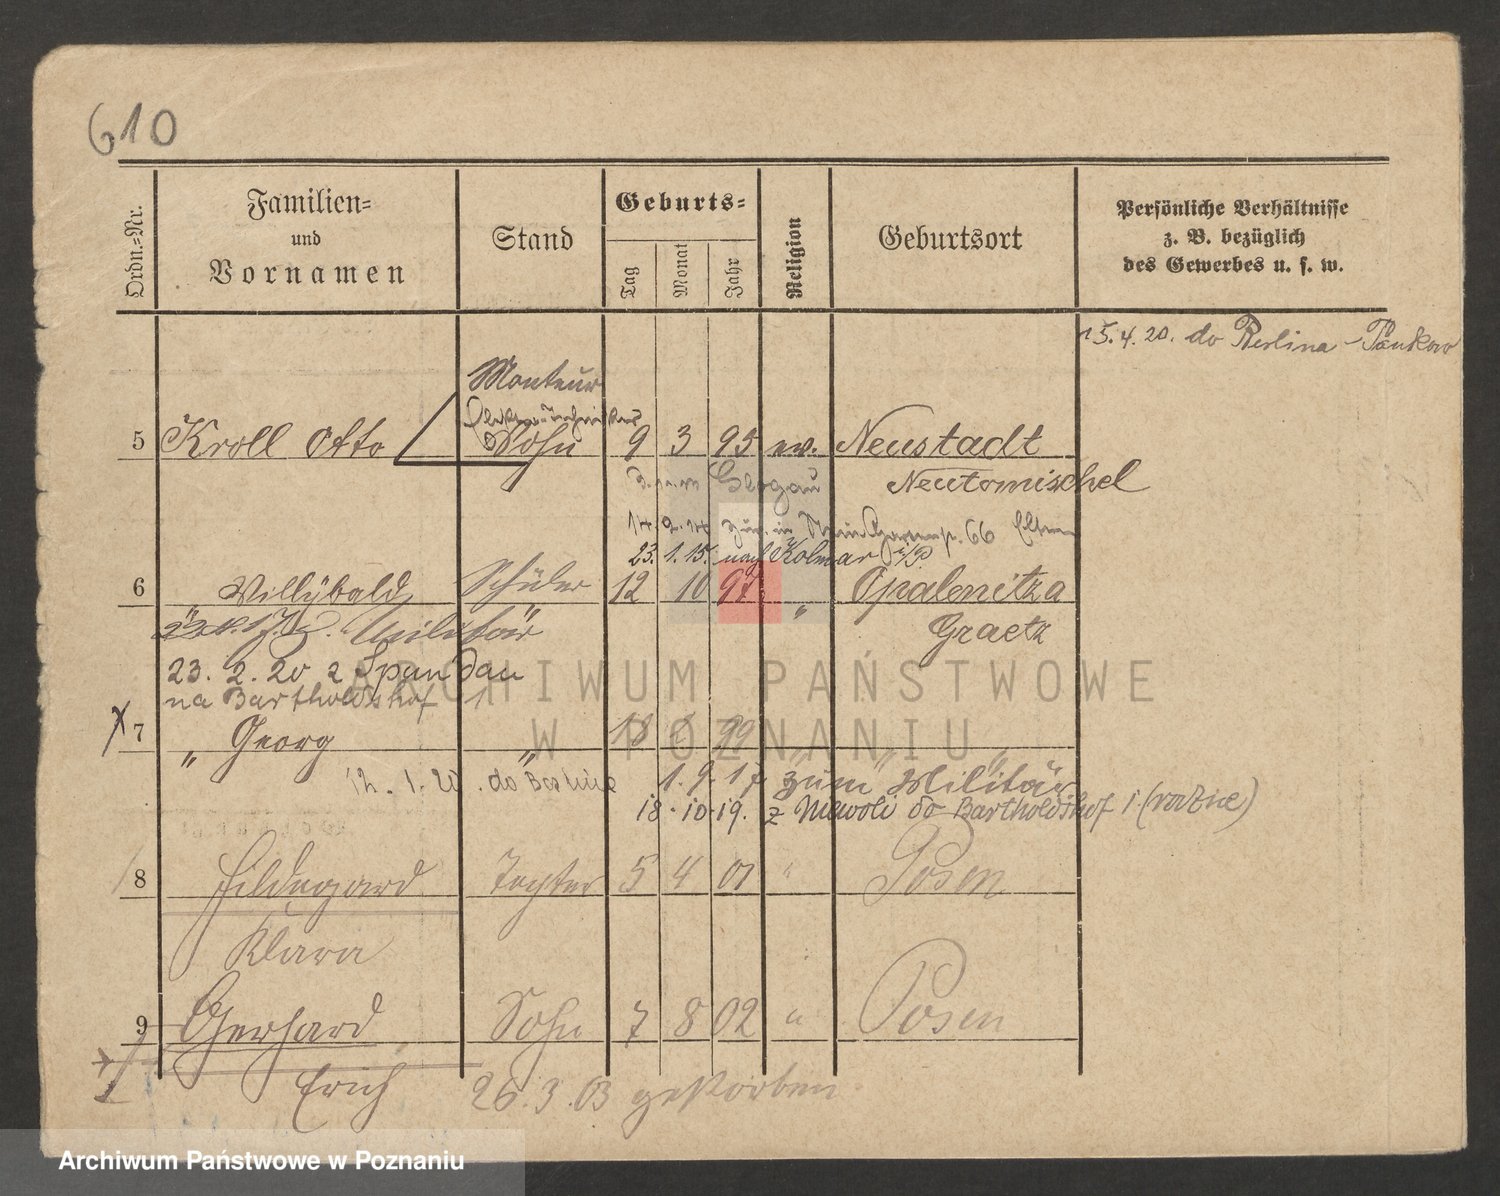 610
Ordn.-Nr.
Familien-
und
Vornamen
Stand
Geburts-
Tag
Monat
Jahr
Religion
Geburtsort
Persönliche Verhältnisse
z. B. bezüglich
des Gewerbes u. s. w.
15.4.20. do Berlina - Pankow
Monteur
5 Kroll Otto Sohn 9 3 95 ev. Neustadt
Neutomischel
Glogau
14.9.14 zur. in 66
23.1.15. nach Kolmar i/P.
6 Willybald Schüler 12 10 97 " Opalenitza
Militär
Graetz
23. 2. 20 z Spandau
na Bartholdshof 1
X 7 " Georg " 18 99 " " "
12. 1. 20. do 1. 9. 17 zum Militär
18.10.19. z niewoli do Bartholdshof 1 (razine)
8 Hildegard Tochter 5 4 01 " Posen
Klara
9 Gerhard Sohn 7 8 02 " Posen
Erich 26.3.03 gestorben
ARCHIWUM PAŃSTWOWE
W POZNANIU
Archiwum Państwowe w Poznaniu